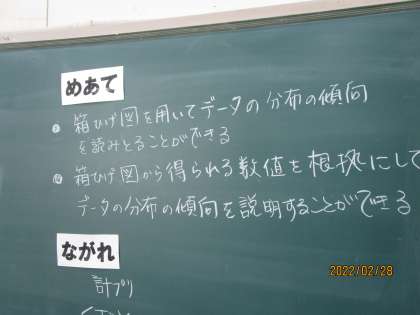 めあて
箱ひげ図を用いてデータの分布の傾向
を読みとることができる
箱ひげ図から得られる数値を根拠にして
データの分布の傾向を説明することができる
ながれ
計プリ
2022/02/28